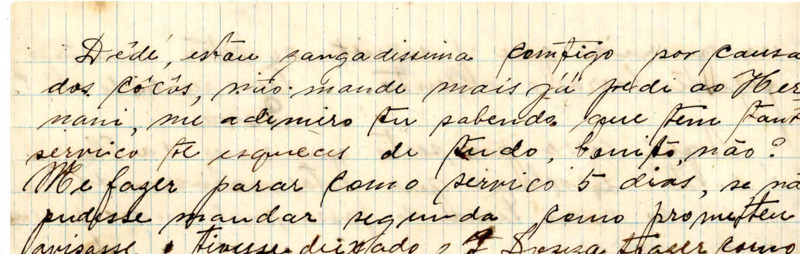 Dêdê, estou zangadissima comtigo por causa
dos côcôs, não mande mais já pedi ao Her
nani, me ademiro tu sabendo que tem tant
serviço te esqueces de tudo, bonito, não?
Me fazer parar com o serviço 5 dias, se nã
pudesse mandar segunda como prometteu
avisasse tivesse deixado Souza trazer como